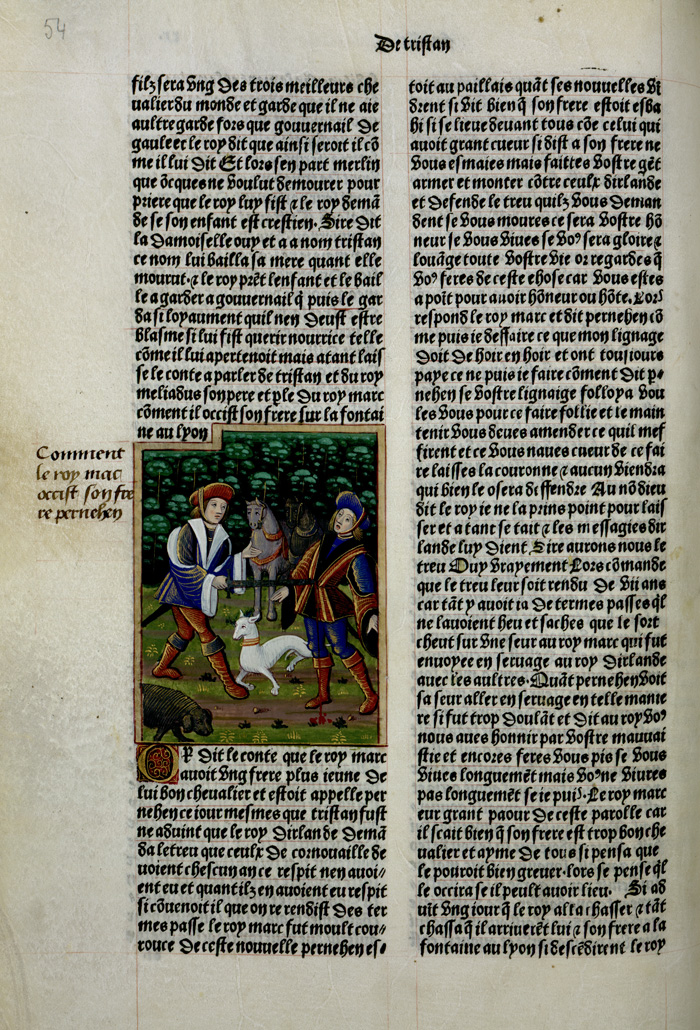 54
De tristan
filz sera vng des trois meilleurs che
ualier du monde et garde que il ne aie
aultre garde fors que gouuernail de
gaule et le roy dit que ainsi seroit il cõ
me il lui dit Et lors sen part merlin
que õcques ne voulut demourer pour
priere que le roy luy fist ⁊ le roy demã
de se son enfant est crestien. Sire dit
la damoiselle ouy et a a nom tristan
ce nom lui bailla sa mere quant elle
mourut. ⁊ le roy prẽt lenfant et le bail
le a garder a gouuernail q̃ puis le gar
da si loyaument quil nen deust estre
blasme si lui fist querir nourrice telle
cõme il lui apertenoit mais atant lais
se le conte a parler de tristan et du roy
meliadus son pere et ꝑle du roy marc
cõment il occist son frere sur la fontai
ne au lyon
Comment
le roy mac
occist son fre
re pernehen
OR dit le conte que le roy marc
auoit vng frere plus ieune de
lui bon cheualier et estoit appelle per
nehen ce iour mesmes que tristan fust
ne aduint que le roy dirlande demã
da le treu que ceulx de cornouaille de
uoient chescun an ce respit nen auoi/
ent eu et quant ilz en auoient eu respit
si cõuenoit il que on re rendist des ter
mes passe le roy marc fut moult cou/
rouce de ceste nouuelle pernehen es/
toit au paillais quãt ses nouuelles vi
drent si vit bien q̃ son frere estoit esba
hi si se lieue deuant tous cõe celui qui
auoit grant cueur si dist a son frere ne
vous esmaies mais faittes vostre gẽt
armer et monter cõtre ceulx dirlande
et defende le treu quilz vous deman
dent se vous moures ce sera vostre hõ
neur se vous viues se voꝰ sera gloire ⁊
louãge toute vostre vie or regardes q̃
voꝰ feres de ceste chose car vous estes
a poĩt pour auoir hõneur ou hõte. Lors
respond le roy marc et dit pernehen cõ
me puis ie deffaire ce que mon lignage
doit de hoir en hoir et ont tousiours
paye ce ne puis ie faire cõment dit p
nehen se vostre lignaige folloya vou
les vous pour ce faire follie et le main
tenir vous deues amender ce quil mef
firent et ce vous naues cueur de ce fai
re laisses la couronne ⁊ aucun viendra
qui bien le osera diffendre Au nõ dieu
dit le roy ie ne la prins point pour lais
ser et a tant se tait ⁊ les messagies dir
lande luy dient. Sire aurons nous le
treu Ouy vrayement Lors cõmande
que le treu leur soit rendu de vii ans
car tãt y auoit ia de termes passes q̃l
ne lauoient heu et saches que le sort
cheut sur vne seur au roy marc qui fut
enuoyee en seruage au roy dirlande
auec les aultres. Quãt pernehen voit
sa seur aller en seruage en telle manie
re si fut trop doulãt et dit au roy voꝰ
nous aues honnir par vostre mauuai
stie et encores feres vous pis se vous
viues longuemẽt mais voꝰ ne viures
pas longuemẽt se ie puis. Le roy marc
eur grant paour de ceste parolle car
il scait bien q̃ son frere est trop bon che
ualier et ayme de tous si pensa que
le pouroit bien greuer. lors se pense q̃l
le occira se il peult auoir lieu. Si ad
uĩt vng iour q̃ le roy alla chasser ⁊ tãt
chassa q̃ il arriuerẽt lui ⁊ son frere a la
fontaine au lyon si descẽdirent le roy